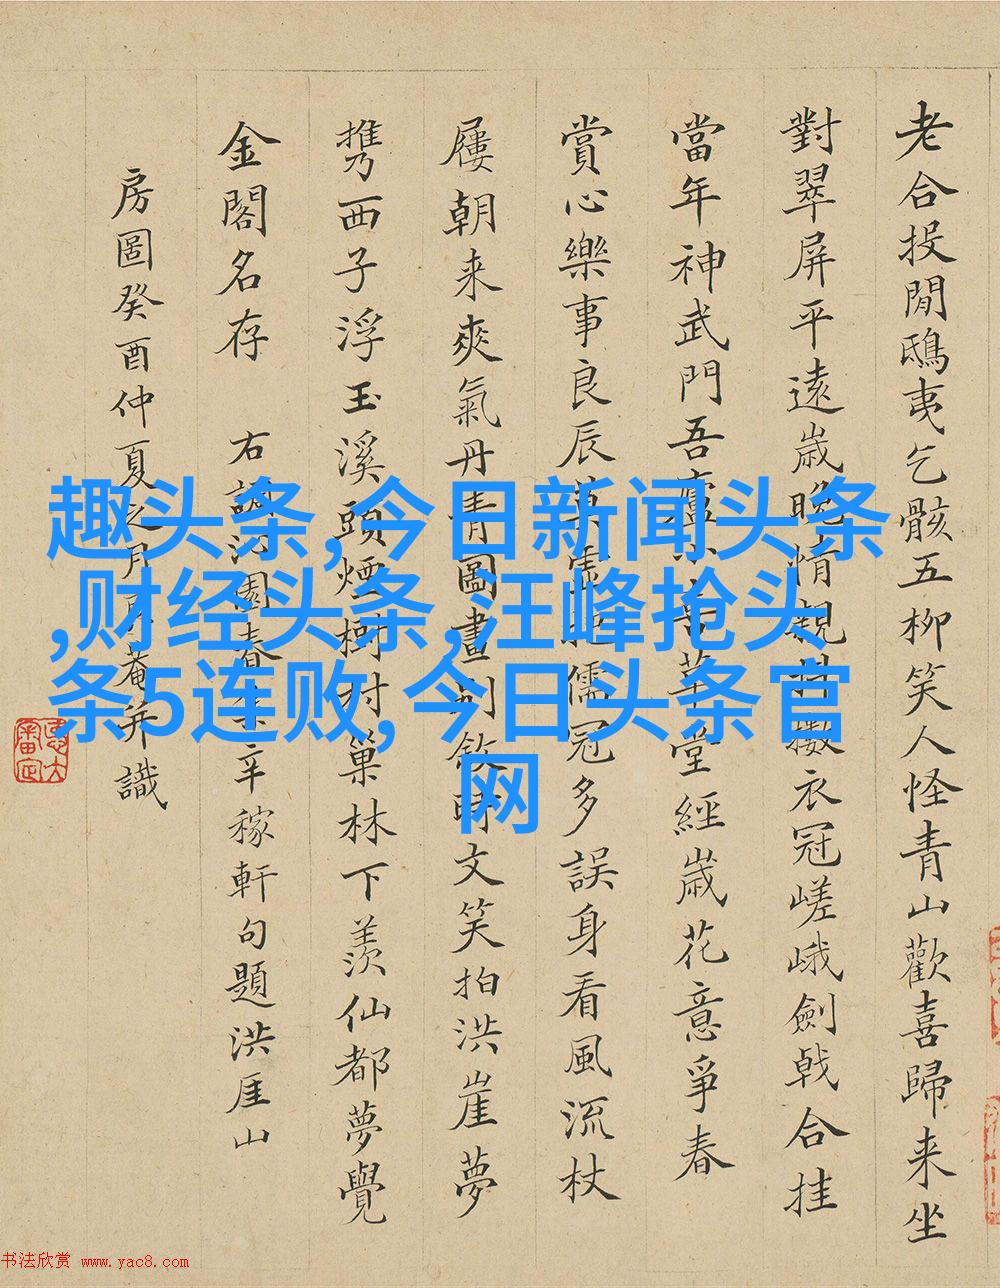 老合投閒鴟夷乞骸五柳笑人怪青山歡喜歸来坐
對翠屏平遠歲晚情親衣冠嵯峨劍戟合挂
當年神武門吾廬小草堂經歲花意爭春
賞心樂事良辰莫儒冠多誤身看風流杖
屨朝来爽氣丹青圖畫飲時文笑拍洪崖夢
携西子浮玉溪頭煙樹村巢林下羡仙都夢覺
金閣名存 右調沁園春集辛稼軒句題洪厓山
房圖癸酉仲夏之月菴并識
趣头条,今日新闻头条
,财经头条,汪峰抢头
条5连败,今日头条官
网
书法欣赏 www.yac8.com